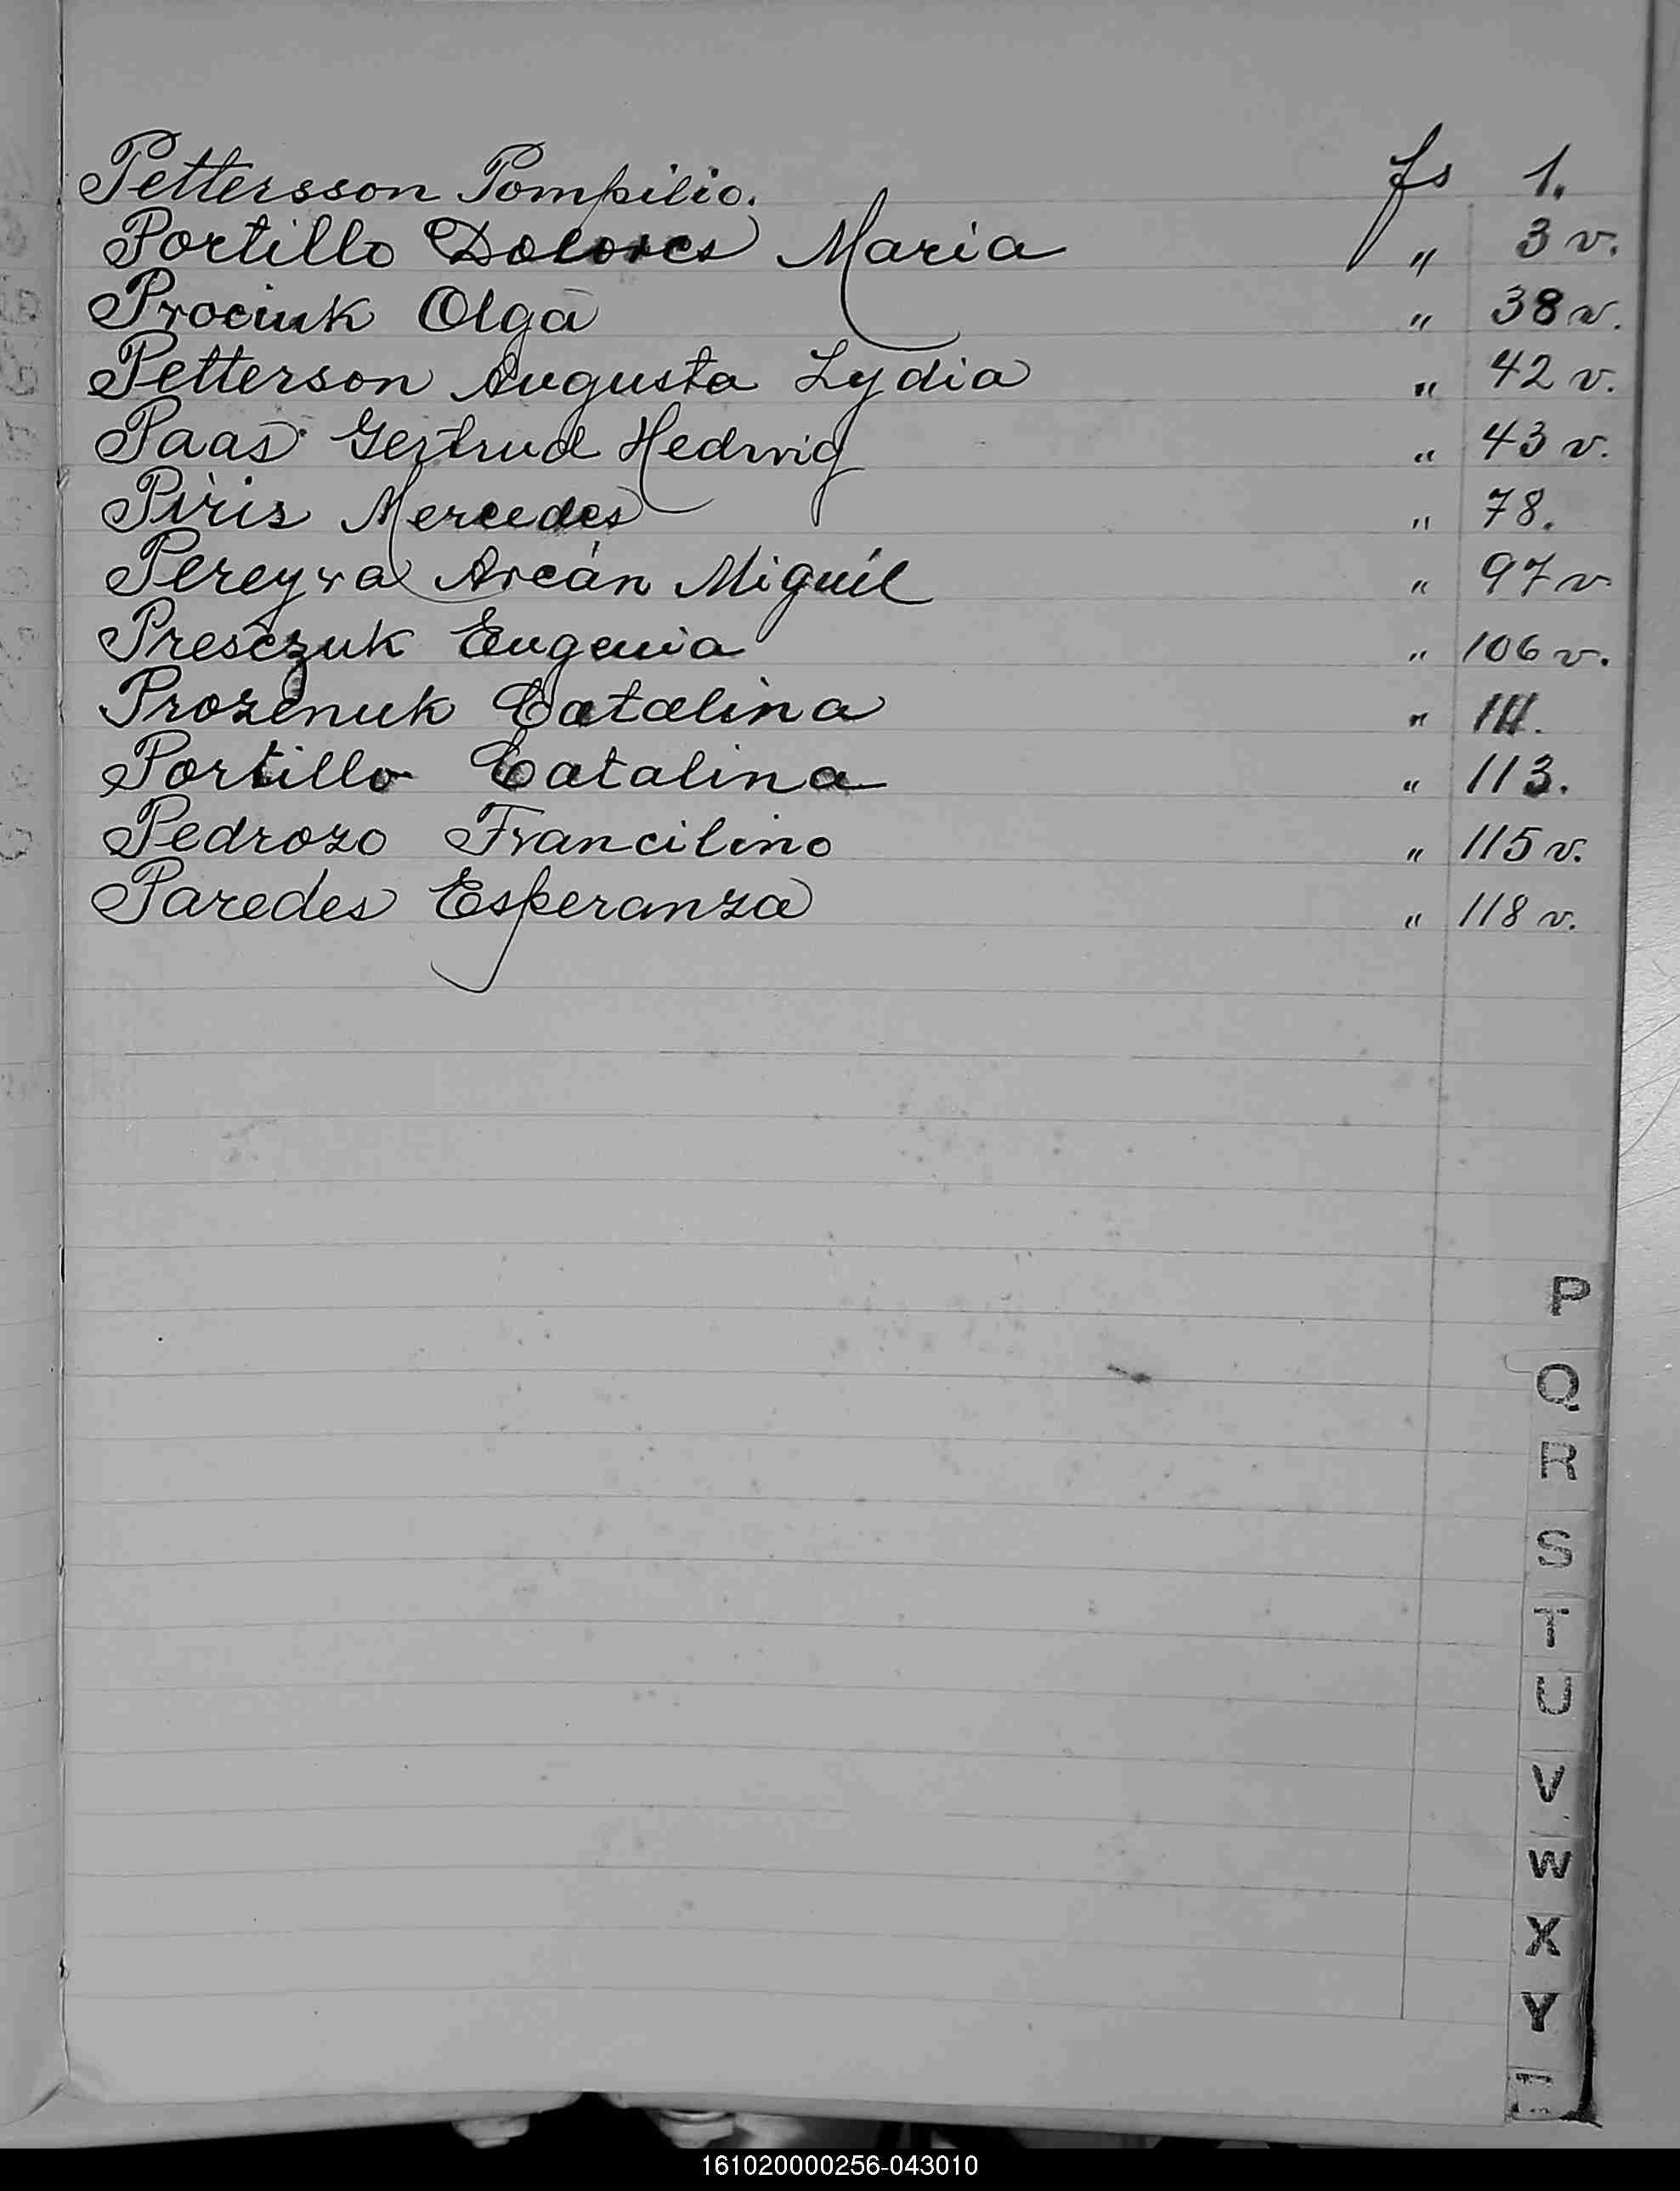 Pettersson Pompilio. fs 1.
Portillo Dolores Maria " 3 v.
Prociuk Olga " 38 v.
Petterson Augusta Lydia " 42 v.
Paas Gertrud Hedwig " 43 v.
Piris Mercedes " 78.
Pereyra Arcán Miguel " 97 v
Presczuk Eugenia " 106 v.
Prozenuk Catalina " 111.
Portillo Catalina " 113.
Pedrozo Francilino " 115 v.
Paredes Esperanza " 118 v.
P
Q
R
S
T
U
V
W
X
Y
161020000256-043010